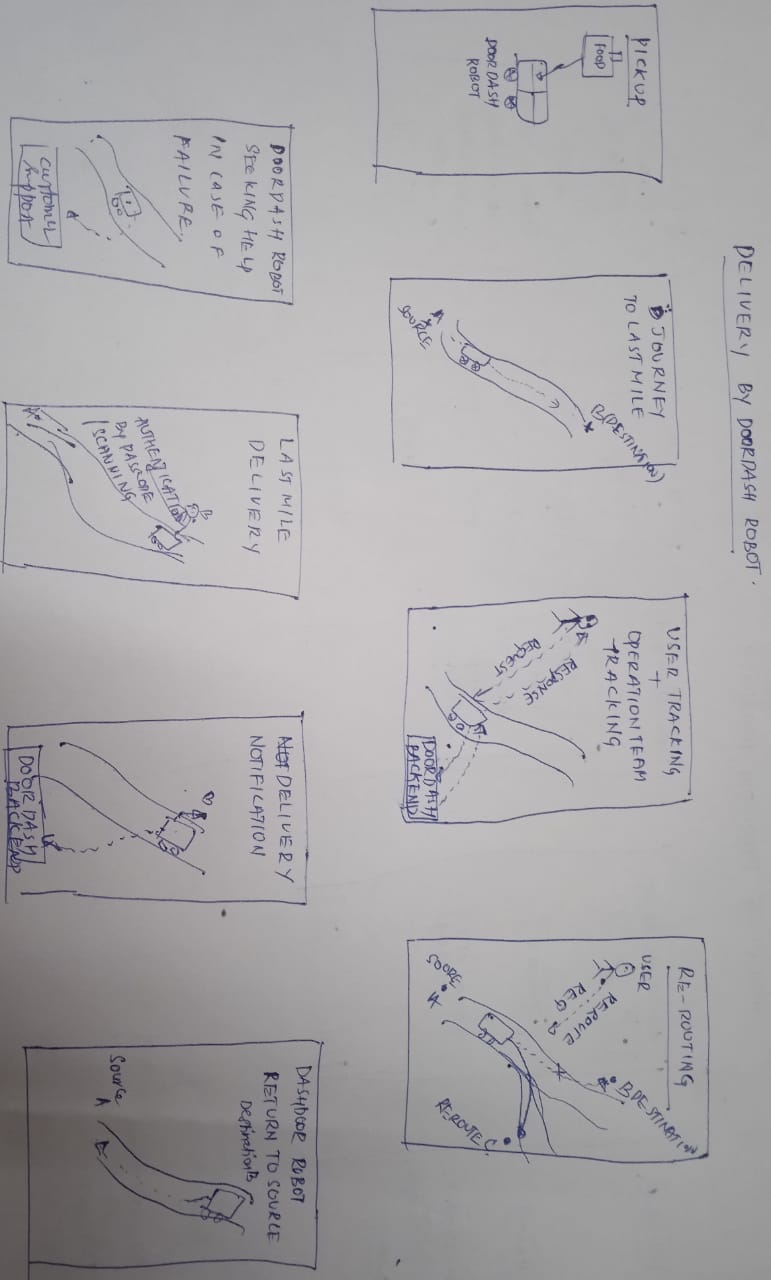 DELIVERY BY DOORDASH ROBOT.
PICKUP
FOOD
DOORDASH
ROBOT
JOURNEY
TO LAST MILE
B(DESTINATION)
A
SOURCE
USER TRACKING
+
OPERATION TEAM
TRACKING
RESPONSE
REQUEST
DOORDASH
BACKEND
RE-ROUTING
USER
B(DESTINATION
REROUTE
REQ
SOORE
A
RE-ROUTE C
DOORDASH ROBOT
SEEKING HELP
IN CASE OF
FAILURE.
customer
support
LAST MILE
DELIVERY
B
AUTHENTICATION
BY PASSCODE
/SCANNING
A
NOT DELIVERY
NOTIFICATION
DOORDASH
BACKEND
DASHDOOR ROBOT
RETURN TO SOURCE
Destination B
Source
A